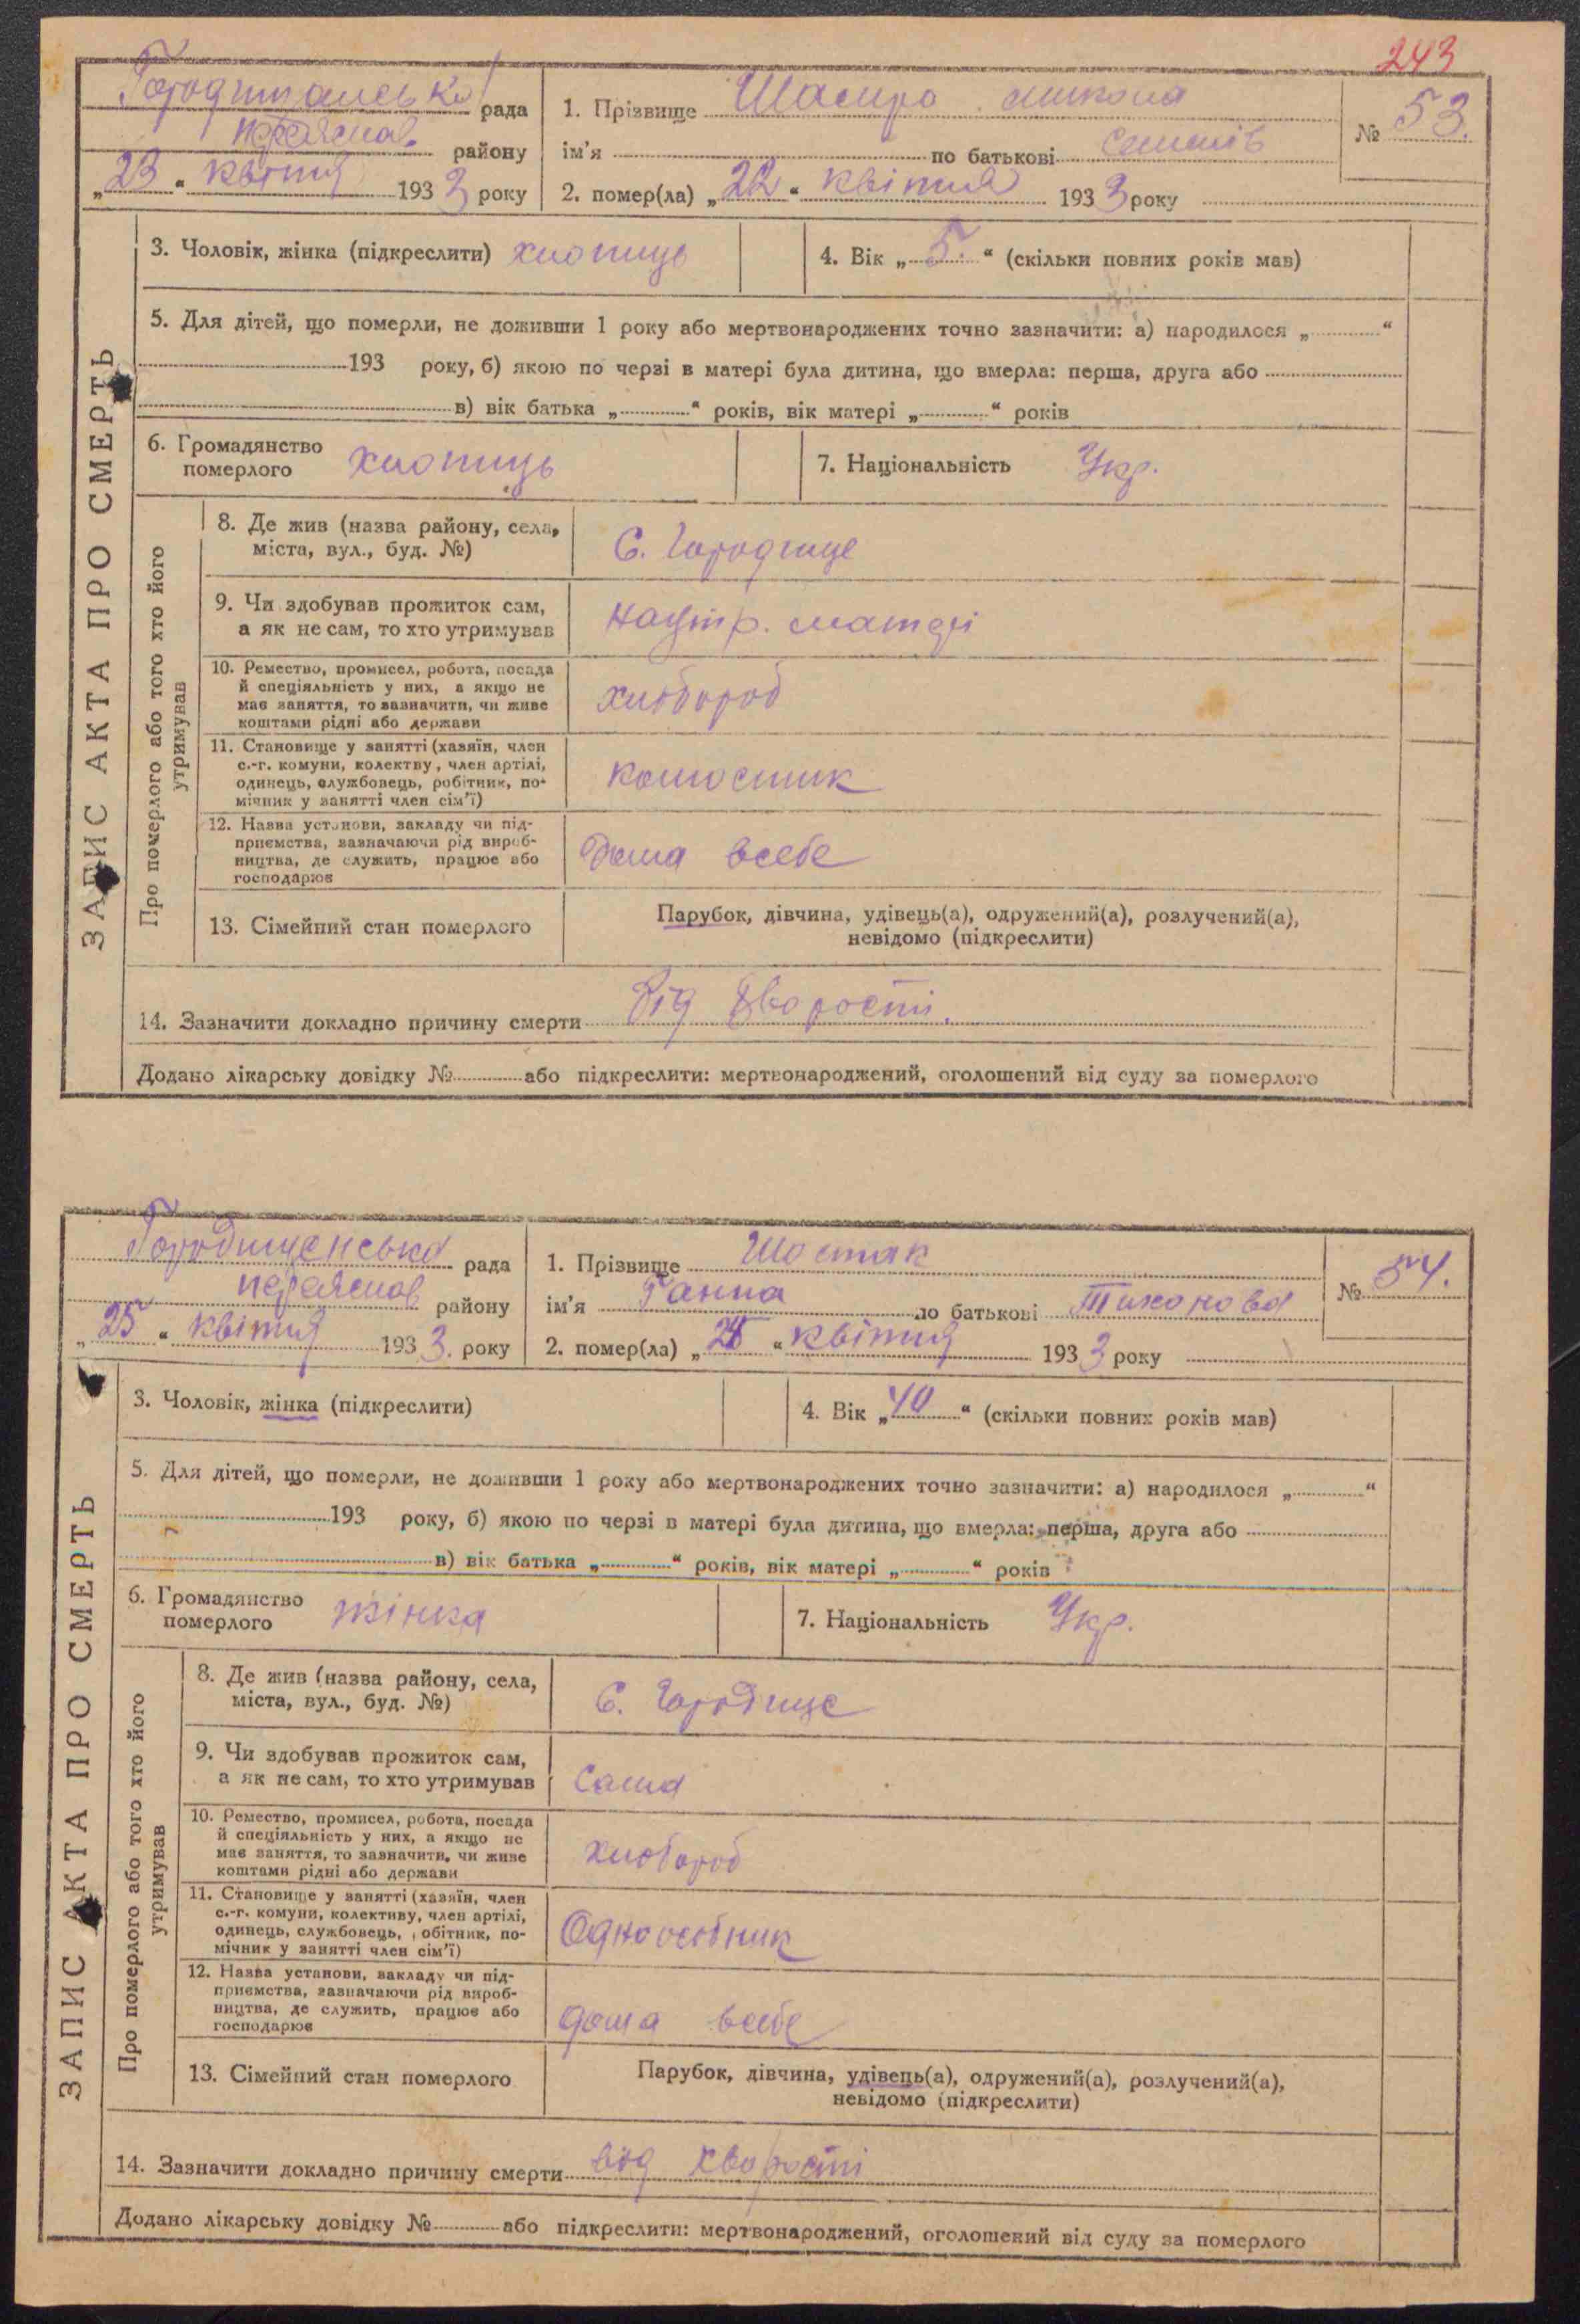 243
Городищенська рада
Переяслав. району
„23“ квітня 1933 року
1. Прізвище Микола
ім'я по батькові
№ 53.
2. помер(ла) „22“ квітня 1933 року
3. Чоловік, жінка (підкреслити) хлопиць
4. Вік „5.“ (скільки повних років мав)
5. Для дітей, що померли, не доживши 1 року або мертвонароджених точно зазначити: а) народилося „ “
193 року, б) якою по черзі в матері була дитина, що вмерла: перша, друга або
в) вік батька „ “ років, вік матері „ “ років
6. Громадянство
померлого хлопиць
7. Національність Укр.
ЗАПИС АКТА ПРО СМЕРТЬ
Про померлого або того хто його
утримував
8. Де жив (назва району, села,
міста, вул., буд. №)
С. Городище
9. Чи здобував прожиток сам,
а як не сам, то хто утримував
матері
10. Ремество, промисел, робота, посада
й спеціяльність у них, а якщо не
має заняття, то зазначити, чи живе
коштами рідні або держави
хлібороб
11. Становище у занятті (хазяїн, член
с.-г. комуни, колектву, член артілі,
одинець, службовець, робітник, по-
мічник у занятті член сім'ї)
12. Назва установи, закладу чи під-
приємства, зазначаючи рід вироб-
ництва, де служить, працює або
господарює
дома всебе
13. Сімейний стан померлого
Парубок, дівчина, удівець(а), одружений(а), розлучений(а),
невідомо (підкреслити)
14. Зазначити докладно причину смерти Від хворости.
Додано лікарську довідку № або підкреслити: мертвонароджений, оголошений від суду за померлого
Городищенська рада
Переяслав району
„25“ квітня 1933. року
1. Прізвище Шостак
ім'я Ганна по батькові Тихонова
№ 54.
2. помер(ла) „ “ квітня 1933 року
3. Чоловік, жінка (підкреслити)
4. Вік „40“ (скільки повних років мав)
5. Для дітей, що померли, не доживши 1 року або мертвонароджених точно зазначити: а) народилося „ “
193 року, б) якою по черзі в матері була дитина, що вмерла: перша, друга або
в) вік батька „ “ років, вік матері „ “ років
6. Громадянство
померлого жінка
7. Національність Укр.
ЗАПИС АКТА ПРО СМЕРТЬ
Про померлого або того хто його
утримував
8. Де жив (назва району, села,
міста, вул., буд. №)
С. Городище
9. Чи здобував прожиток сам,
а як не сам, то хто утримував
сама
10. Ремество, промисел, робота, посада
й спеціяльність у них, а якщо не
має заняття, то зазначити, чи живе
коштами рідні або держави
хлібороб
11. Становище у занятті (хазяїн, член
с.-г. комуни, колективу, член артілі,
одинець, службовець, робітник, по-
мічник у занятті член сім'ї)
Одноосібник
12. Назва установи, закладу чи під-
приємства, зазначаючи рід вироб-
ництва, де служить, працює або
господарює
дома всебе
13. Сімейний стан померлого
Парубок, дівчина, удівець(а), одружений(а), розлучений(а),
невідомо (підкреслити)
14. Зазначити докладно причину смерти від хворості
Додано лікарську довідку № або підкреслити: мертвонароджений, оголошений від суду за померлого